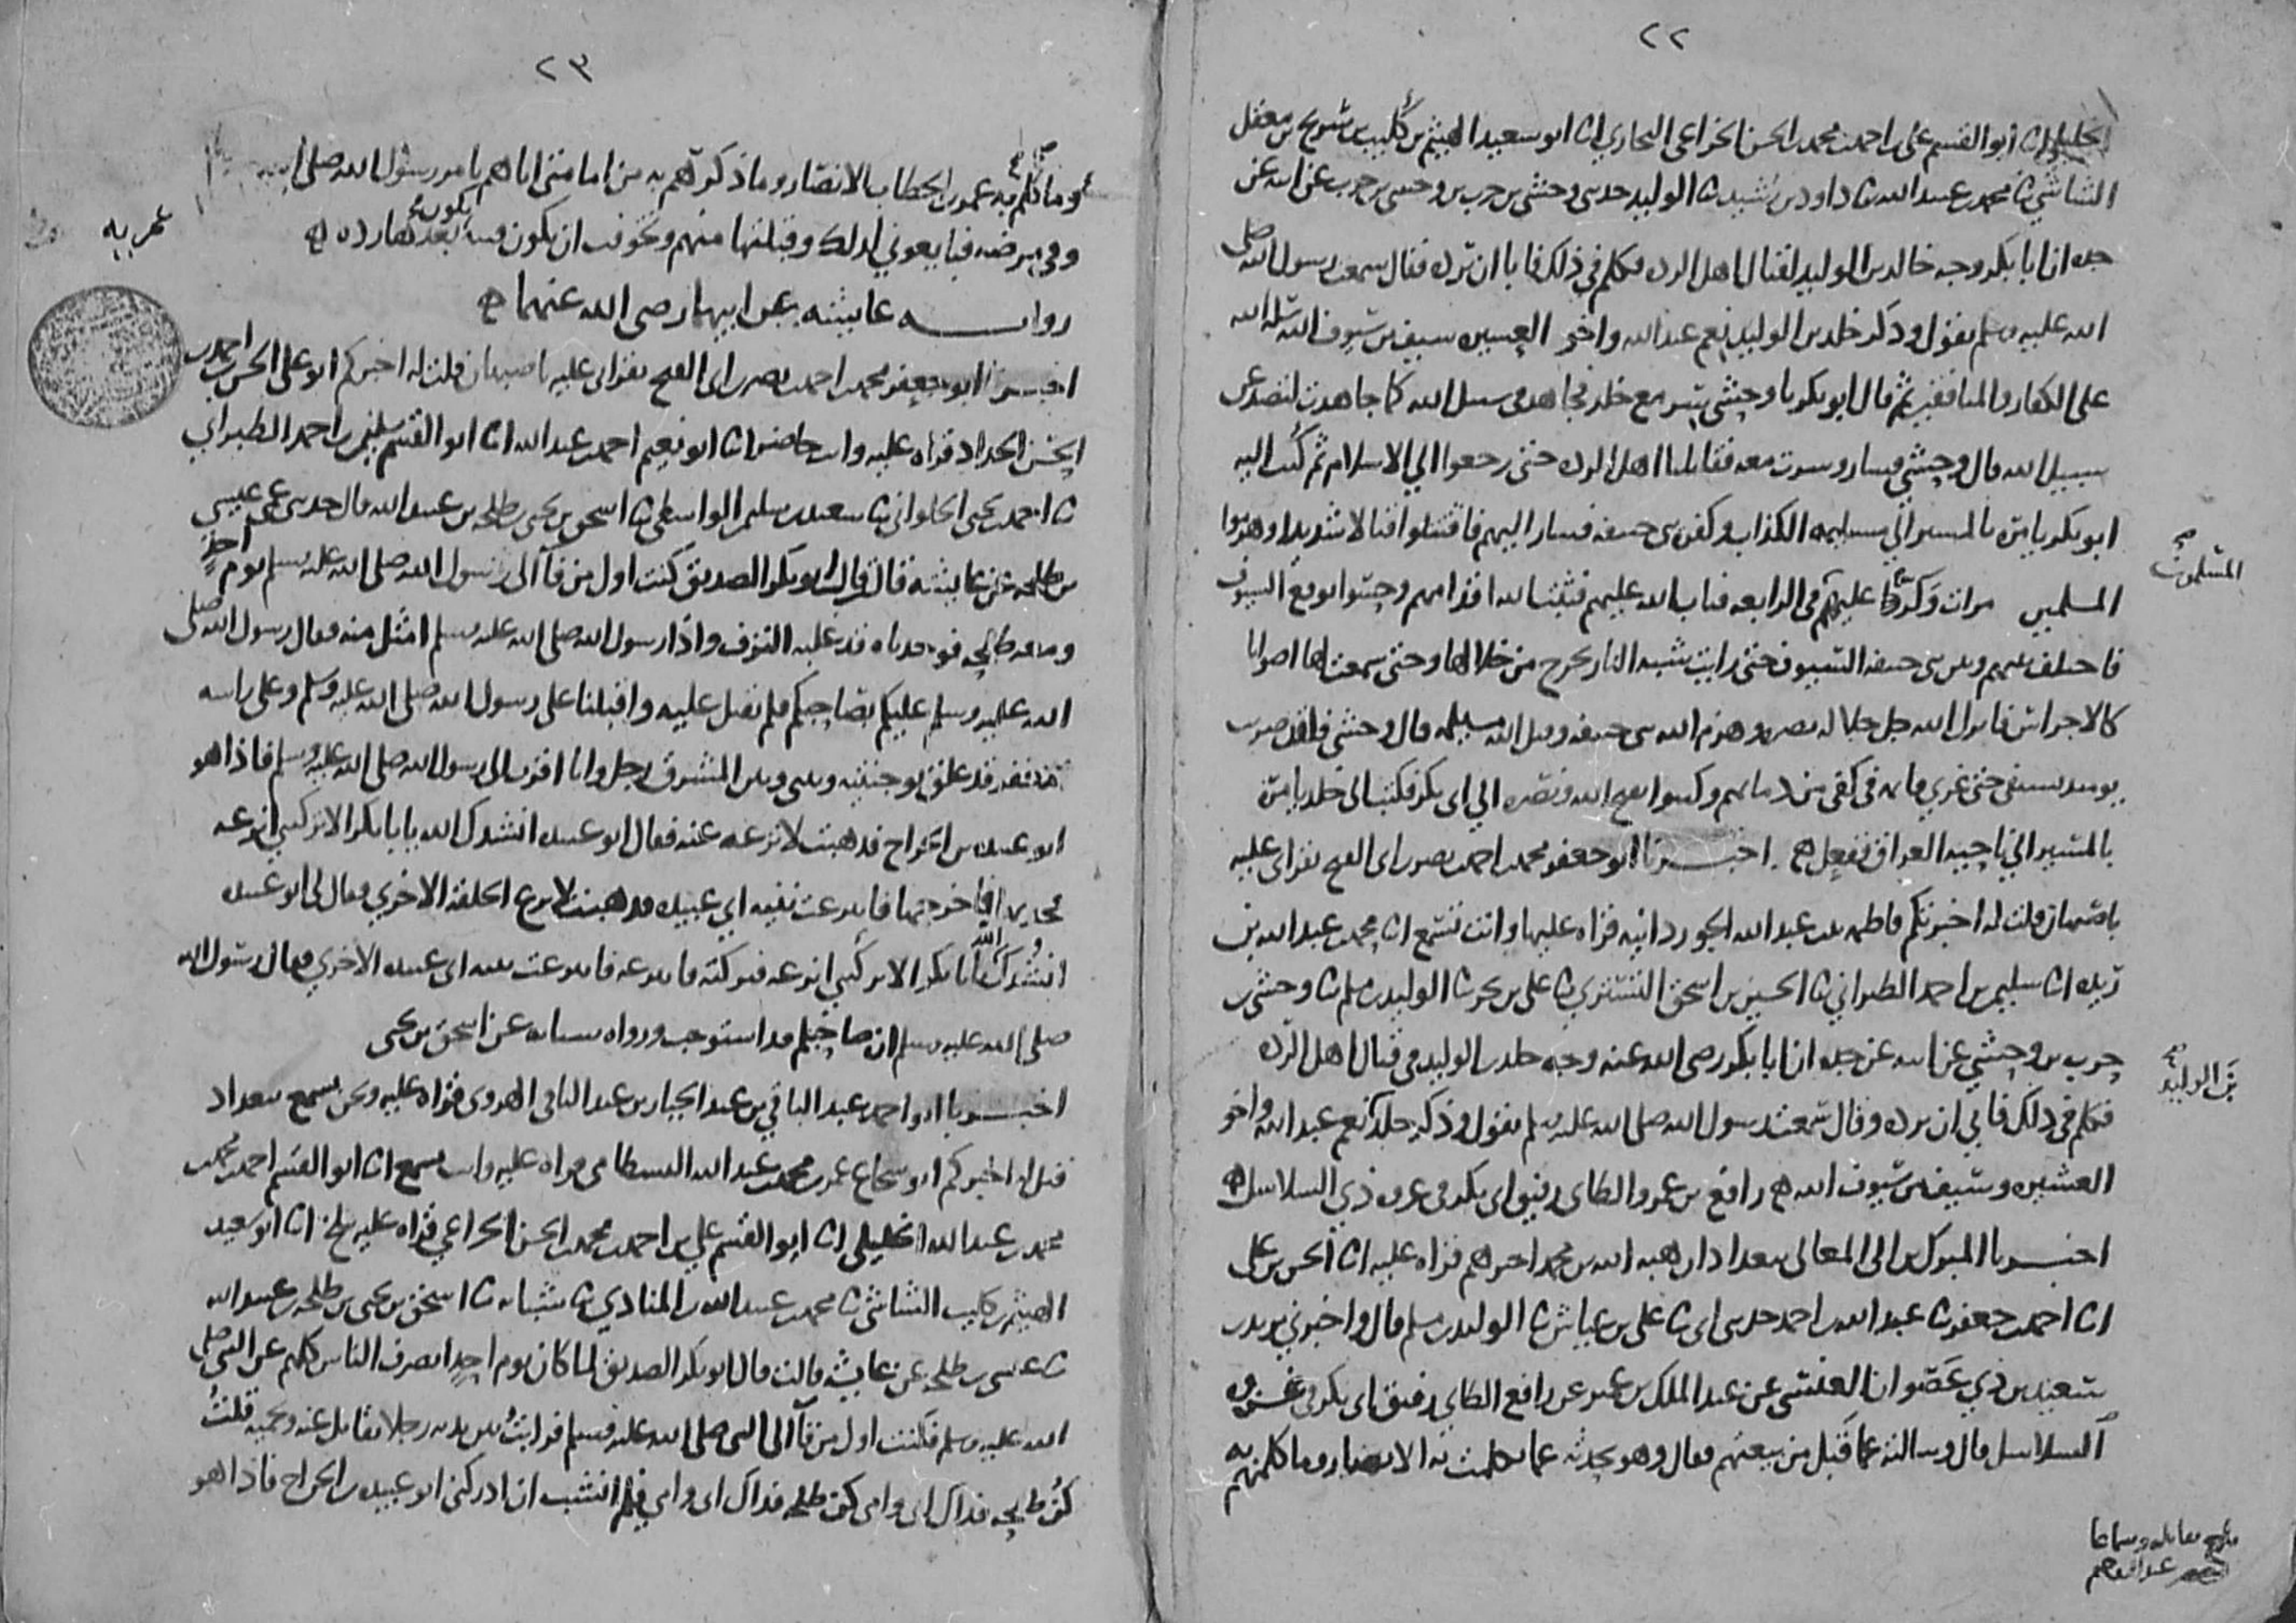 ٢٢
الخليلي انا ابو القسم علي بن احمد بن محمد بن الحسن الخزاعي انا ابو سعيد الهيثم بن كليب بن شريح بن معقل
الشاشي نا محمد بن عبيد الله نا داود بن رشيد نا الوليد حدثني وحشي بن حرب بن وحشي بن حرب عن ابيه عن
جده ان ابا بكر وجه خالد بن الوليد لقتال اهل الرده فكلم في ذلك فابا ان يرده فقال سمعت رسول الله صلى
الله عليه وسلم يقول وذكر خلد بن الوليد نعم عبد الله واخو العشيره سيف من سيوف الله سله الله
على الكفار والمنافقين ثم قال ابو بكر يا وحشي سر مع خلد فجاهد في سبيل الله كما جاهدت لتصد عن
سبيل الله قال وحشي فسار وسرت معه فقاتلنا اهل الرده حتى رجعوا الي الاسلام ثم كتب اليه
ابو بكر يامره بالمسير الي مسيلمه الكذاب وكفره بني حنيفه فسار اليهم فاقتتلوا قتالا شديدا وهزموا
المسلمين مرات وكروا عليهم في الرابعه فتاب الله عليهم فثبت الله اقدامهم وصبروا لوقع السيوف
المسلمون
فاختلف بينهم وبين بني حنيفه السيوف حتى رايت شبه النار تخرج من خلالها وحتى سمعت لها اصواتا
كالاجراس فانزل الله جل جلاله نصره وهزم الله بني حنيفه وقتل الله مسيلمه قال وحشي فلقد ضربت
يومئذ بسيفي حتى غري قائمه في كفي من دمائهم وكتبوا بفتح الله ونصره الي ابي بكر فكتب الى خلد يامره
بالمسير الي ناحيه العراق ففعل ه اخبرنا ابو جعفر محمد بن احمد بن نصر بن ابي الفتح بقراتي عليه
باصبهان قلت له اخبرتكم فاطمه بنت عبد الله الجوزدانيه قراه عليها وانت تسمع انا محمد بن عبد الله بن
ريذه انا سليمن بن احمد الطبراني نا الحسين بن اسحق التستري نا علي بن بحر نا الوليد بن مسلم نا وحشي بن
حرب بن وحشي عن ابيه عن جده ان ابا بكر رضي الله عنه وجه خلد بن الوليد في قتال اهل الرده
فكلم في ذلك فابي ان يرده وقال سمعت رسول الله صلى الله عليه وسلم يقول وذكر خلد نعم عبد الله واخو
بن الوليد
العشيره وسيف من سيوف الله ه رافع بن عمرو الطائي رفيق ابي بكر في غزوه ذي السلاسل ه
اخبرنا المبرك بن ابي المعالي ببغداد ان هبه الله بن محمد اخبرهم قراه عليه انا الحسن بن علي
انا احمد بن جعفر نا عبد الله بن احمد حدثني ابي نا علي بن عياش نا الوليد بن مسلم قال واخبرني يزيد بن
سعيد بن ذي عصوان العنسي عن عبد الملك بن عمير عن رافع الطائي رفيق ابي بكر في غزوه
السلاسل قال وسالته عما قيل من بيعتهم فقال وهو يحدثه عما تكلمت به الانصار وما كلمهم به
بلغ مقابله وسماعا
٢٣
وما كلم به عمر بن الخطاب الانصار وما ذكرتهم به من امامتي اياهم بامر رسول الله صلى الله
وفي مرضه فبايعوني لذلك وقبلتها منهم وتخوفت ان تكون فتنه يكون بعدها رده ه
روايه عائشه عن ابيها رضي الله عنهما ه
اخبرنا ابو جعفر محمد بن احمد بن نصر بن ابي الفتح بقراتي عليه باصبهان قلت له اخبركم ابو علي الحسن بن احمد بن
الحسن الحداد قراه عليه وانت حاضر انا ابو نعيم احمد بن عبد الله انا ابو القسم سليمن بن احمد الطبراني
نا احمد بن يحيى الحلواني نا سعيد بن سليمن الواسطي نا اسحق بن يحيى بن طلحه بن عبيد الله قال حدثني عمي عيسى
بن طلحه عن عائشه قالت قال ابو بكر الصديق كنت اول من فآ الى رسول الله صلى الله عليه وسلم يوم احد
ومعه طلحه فوجدناه قد غلبه النزف واذا رسول الله صلى الله عليه وسلم امثل منه فقال رسول الله صلى
الله عليه وسلم عليكم بصاحبكم فلم نقبل عليه واقبلنا على رسول الله صلى الله عليه وسلم وعلى راسه
مغفر قد علق بوجنتيه وبيني وبين المشرق رجل وانا اقرب الى رسول الله صلى الله عليه وسلم فاذا هو
ابو عبيده بن الجراح فذهبت لانزعه عنه فقال ابو عبيده انشدك الله يا ابا بكر الا تركتني انزعه
فجذبها فاخرجها فانتزعت ثنيه ابي عبيده فذهبت لانزع الحلقه الاخري فقال لي ابو عبيده
انشدك الله يا ابا بكر الا تركتني انزعه فتركته فانتزعه فانتزعت ثنيه ابي عبيده الاخري فقال رسول الله
صلى الله عليه وسلم ان صاحبكم قد استوجب ورواه شبابه عن اسحق بن يحيى
اخبرنا ابو احمد عبد الباقي بن عبد الجبار بن عبد الباقي الهروي قراه عليه ونحن نسمع ببغداد
قيل له اخبركم ابو شجاع عمر بن محمد بن عبد الله البسطامي قراه عليه وانت تسمع انا ابو القسم احمد بن محمد
محمد بن عبد الله الخليلي انا ابو القسم علي بن احمد بن محمد بن الحسن الخزاعي قراه عليه ببلخ انا ابو سعيد
الهيثم بن كليب الشاشي نا محمد بن عبيد الله بن المنادي نا شبابه نا اسحق بن يحيى بن طلحه بن عبيد الله
نا عيسى بن طلحه عن عائشه قالت قال ابو بكر الصديق لما كان يوم احد انصرف الناس كلهم عن النبي صلى
الله عليه وسلم فكنت اول من فآ الى النبي صلى الله عليه وسلم فرايت بين يديه رجلا يقاتل عنه ويحميه قلت
كن طلحه فداك ابي وامي كن طلحه فداك ابي وامي فلم انشب ان ادركني ابو عبيده بن الجراح فاذا هو